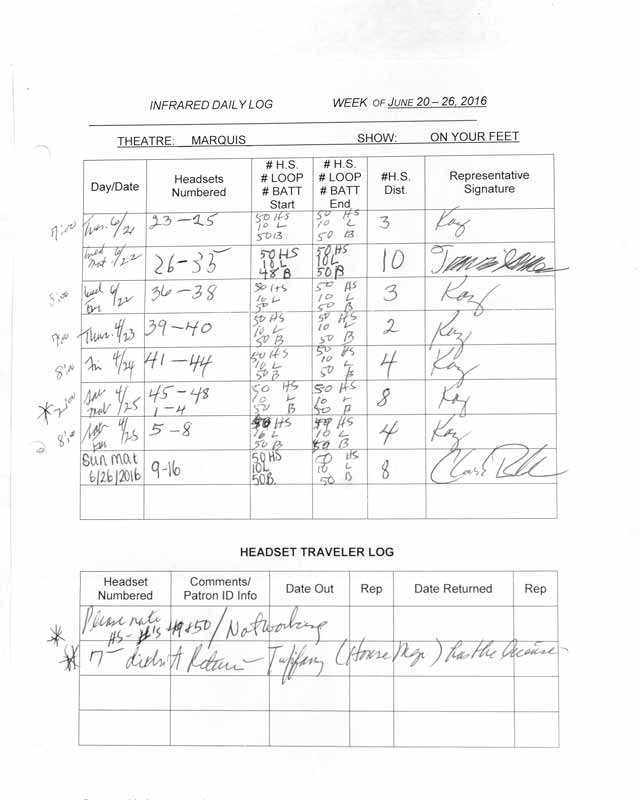 INFRARED DAILY LOG WEEK OF JUNE 20 – 26, 2016
THEATRE: MARQUIS SHOW: ON YOUR FEET
Day/Date Headsets Numbered # H.S. # LOOP # BATT Start # H.S. # LOOP # BATT End #H.S. Dist. Representative Signature
7:00 Tues. 6/21 23-25 50 HS 10 L 50 B 50 HS 10 L 50 B 3 Kay
Wed Mat 6/22 26-35 50 HS 10 L 48 B 50 HS 10 L 50 B 10
8:00 Wed Eve 6/22 36-38 50 HS 10 L 50 50 HS 10 L 50 B 3 Kay
7:00 Thur. 6/23 39-40 50 HS 10 L 50 B 50 HS 10 L 50 B 2 Kay
8:00 Fri 6/24 41-44 50 HS 10 L 50 B 50 HS 10 L 50 B 4 Kay
* 2:00 Sat Mat 6/25 45-48 1-4 50 HS 10 L 50 B 50 HS 10 L 50 B 8 Kay
8:00 Sat Eve 6/25 5-8 HS 10 L 50 B 49 HS 10 L 50 B 4 Kay
Sun Mat 6/26/2016 9-16 50 HS 10L 50B. HS 10 L 50 B 8
HEADSET TRAVELER LOG
Headset Numbered Comments/ Patron ID Info Date Out Rep Date Returned Rep
Please note
* HS-#'s 49+50 / Not working
* 7- didn't Return - Tiffany (House Mgr) has the license